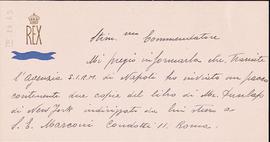 REX
Stim. mo Commendatore
Mi pregio informarla che, tramite
l'agenzia S.I.R.M. di Napoli ho inviato un pacco
contenente due copie del libro di Mr. Dunlap
di New York indirizzato da lui stesso a
S. E. Marconi Condotti 11. Roma.